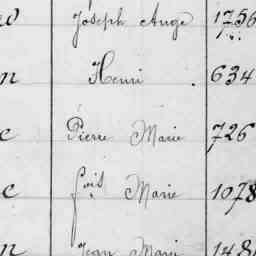 Joseph Ange 1756
n Henri . 634
c Pierre Marie 726
c fois Marie 1078
n Jean Marie 148